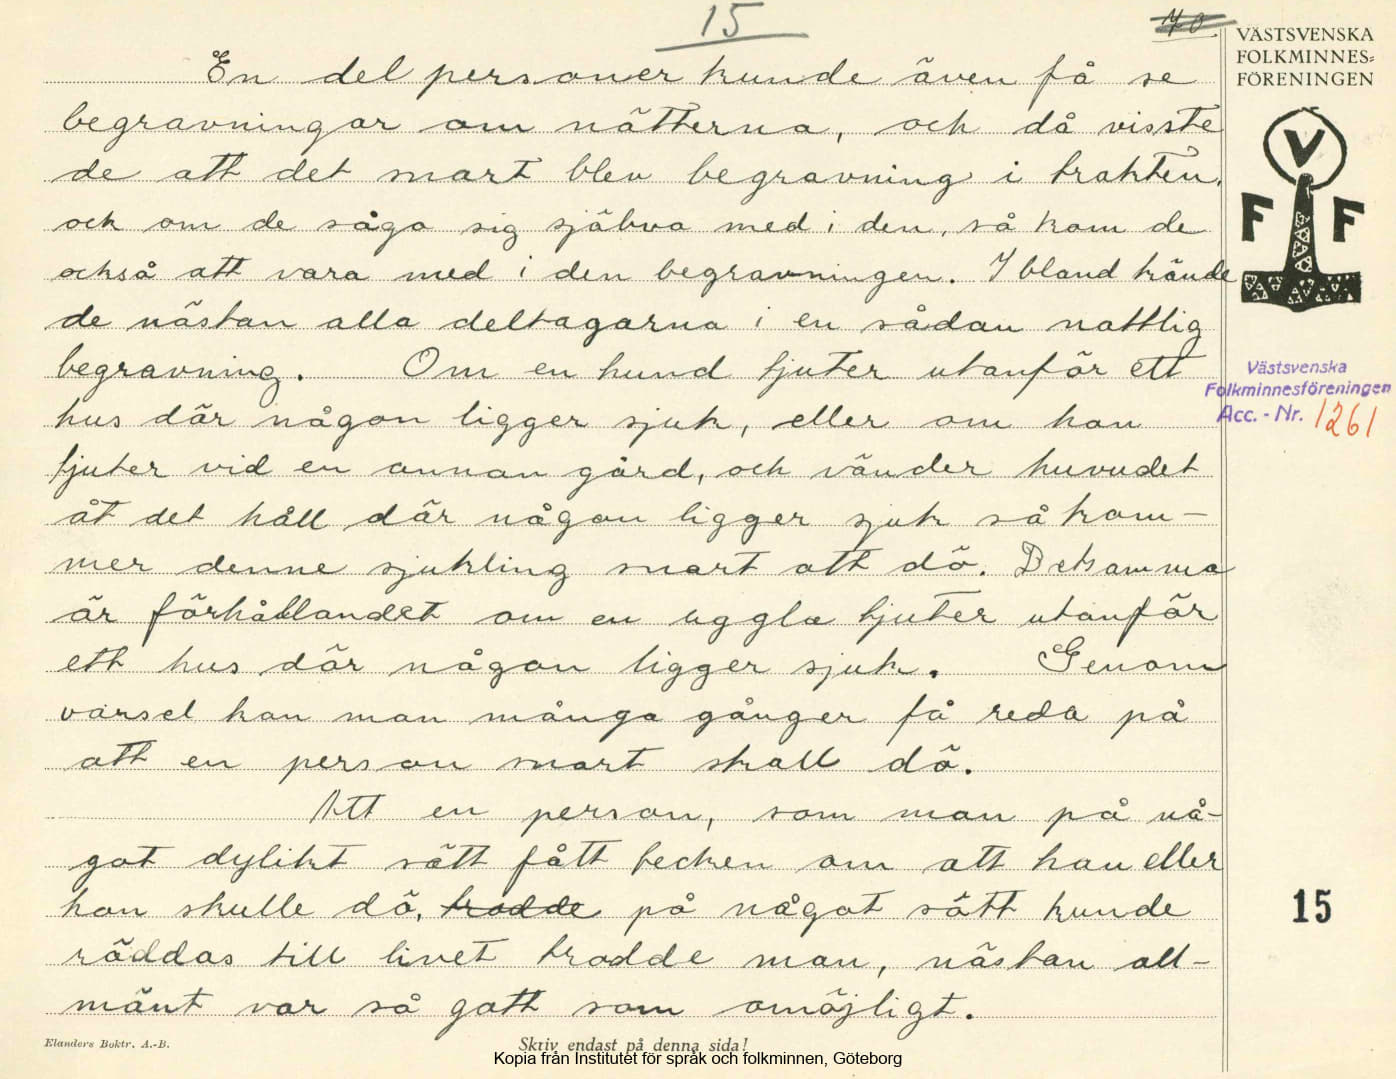 15
70
VÄSTSVENSKA
FOLKMINNES=
FÖRENINGEN
V
F F
En del personer kunde även få se
begravningar om nätterna, och då visste
de att det snart blev begravning i trakten,
och om de såga sig själva med i den, så kom de
också att vara med i den begravningen. Ibland kände
de nästan alla deltagarna i en sådan nattlig
begravning. Om en hund tjuter utanför ett
hus där någon ligger sjuk, eller om han
tjuter vid en annan gård, och vänder huvudet
åt det håll där någon ligger sjuk så kom-
mer denne sjukling snart att dö. Detsamma
är förhållandet om en uggla tjuter utanför
ett hus där någon ligger sjuk. Genom
varsel kan man många gånger få reda på
att en person snart skall dö.
Att en person, som man på nå-
got dylikt sätt fått tecken om att han eller
hon skulle dö, trodde på något sätt kunde
räddas till livet trodde man, nästan all-
mänt var så gott som omöjligt.
Västsvenska
Folkminnesföreningen
Acc. - Nr. 1261
15
Elanders Boktr. A.-B.
Skriv endast på denna sida!
Kopia från Institutet för språk och folkminnen, Göteborg